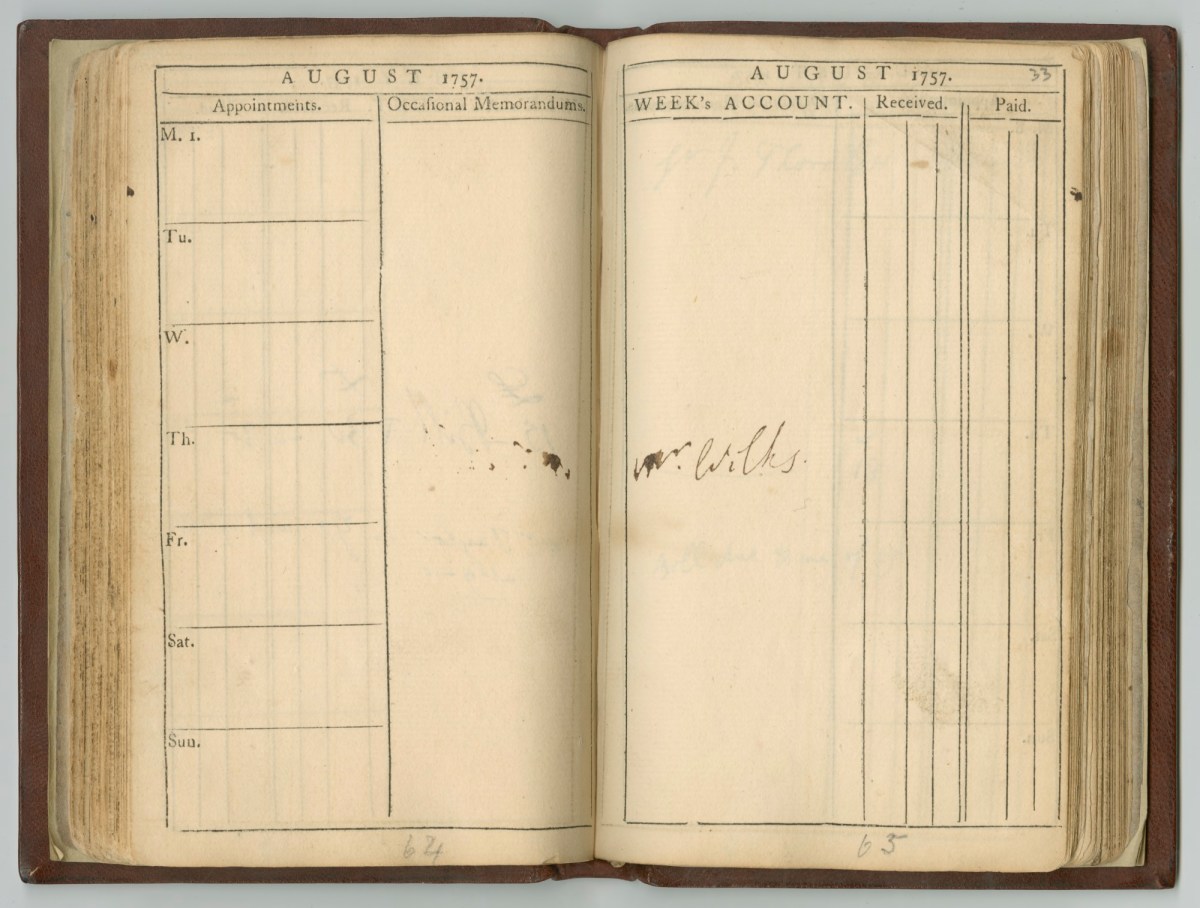 AUGUST 1757.
Appointments. Occasional Memorandums.
M. 1.
Tu.
W.
Th.
Fr.
Sat.
Sun.
64
AUGUST 1757. 33
WEEK's ACCOUNT. Received. Paid.
Mr. Wilks.
65